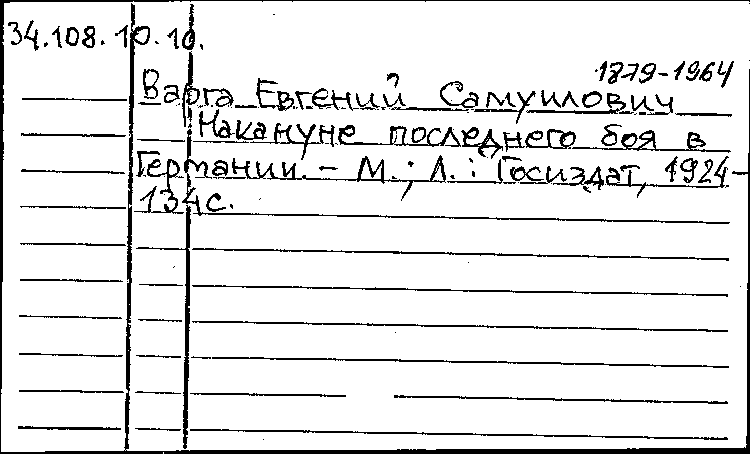 34.108.10.10.
1879-1964
Варга Евгений Самуилович
Накануне последнего боя в
Германии. - М.; Л.: Госиздат, 1924-
134с.